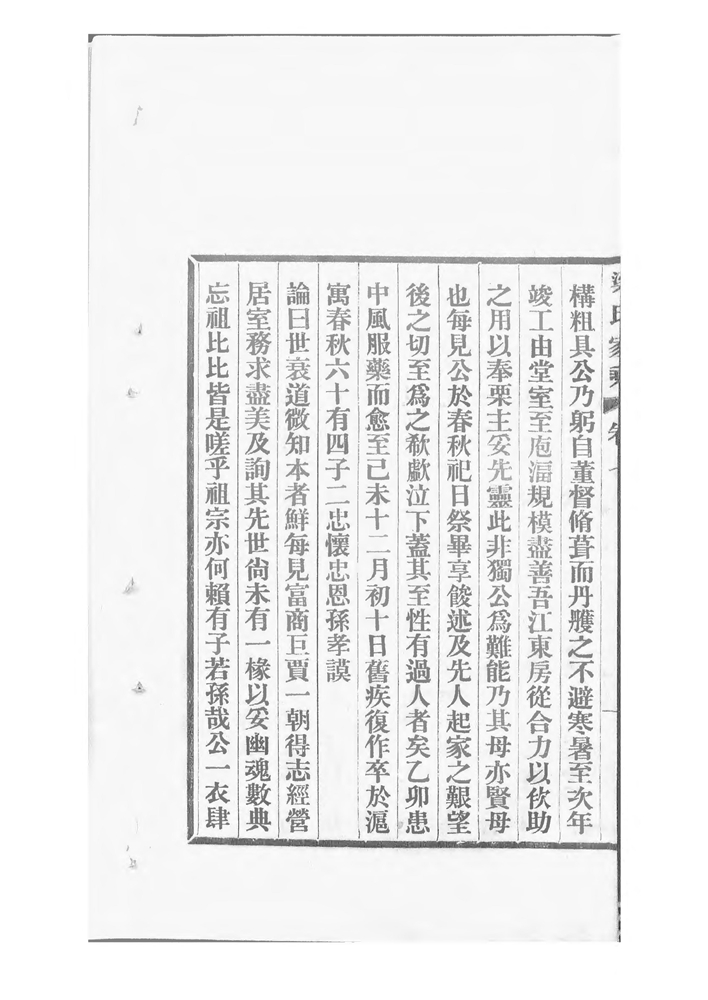 構粗具公乃躬自董督脩葺而丹雘之不避寒暑至次年
竣工由堂室至庖湢規模盡善吾江東房從合力以佽助
之用以奉栗主妥先靈此非獨公爲難能乃其母亦賢母
也每見公於春秋祀日祭畢享餕述及先人起家之艱望
後之切至爲之欷歔泣下蓋其至性有過人者矣乙卯患
中風服藥而愈至己未十二月初十日舊疾復作卒於滬
寓春秋六十有四子二忠懷忠恩孫孝謨
論曰世衰道微知本者鮮每見富商巨賈一朝得志經營
居室務求盡美及詢其先世尙未有一椽以妥幽魂數典
忘祖比比皆是嗟乎祖宗亦何賴有子若孫哉公一衣肆